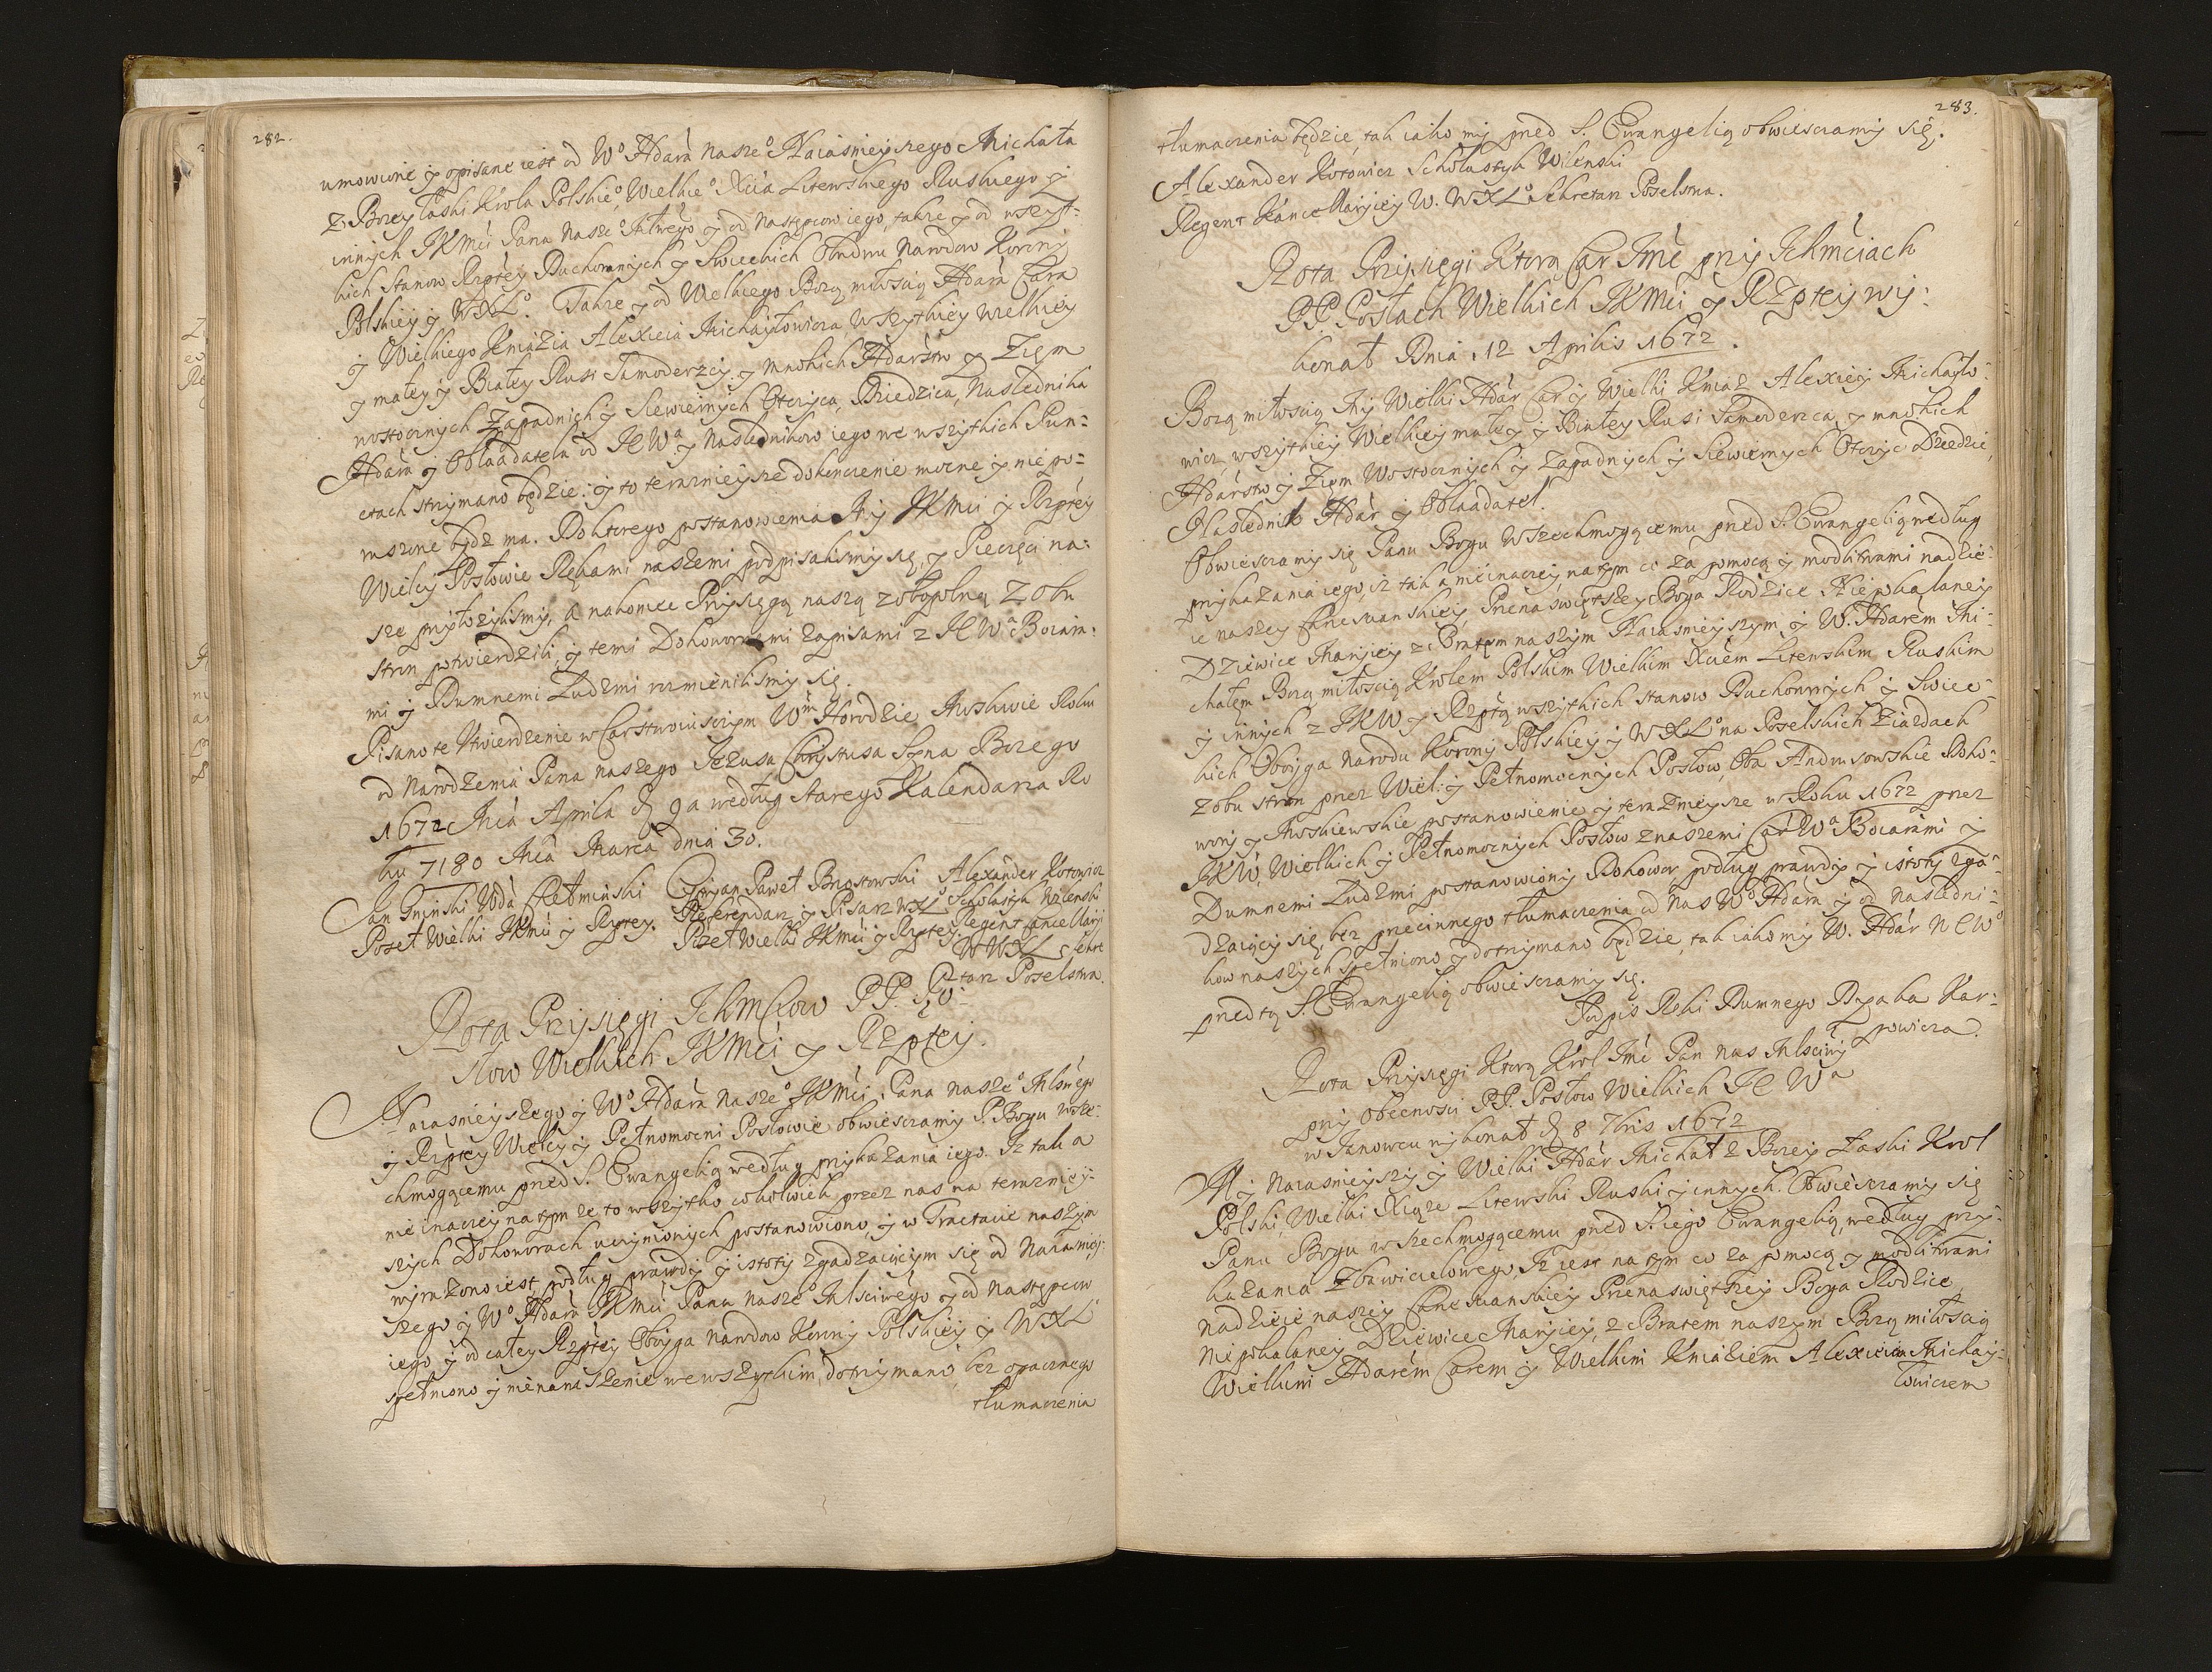 282.
umowione y opisane iest od Wo Hdara Nasze° Naiasnieyszego Michała
z Bożey łaski Krola Polskie°, Wielkie° Xcia Litewskiego Ruskiego y
innych JKMci Pana Nasze° Młwego y od Następcow iego, także y od wszyst:
kich Stanow Rzptey Duchownych y Swieckich Oboyga Narodow Korony
Polskiey y WXL°. Także y od Wielkiego Bożą miłoscią Hdara Cara
y Wielkiego Kniazia Alexieia Michayłowicza wszytkiey wielkiey
y małey y Białey Rusi Samoderżcy, y mnohich Hdarstw y Ziem
wostocznych Zapadnich y Siewiernych Otczyca, Dziedzica, Naslednika
Hdara y Obladatela od JCWa y Naslednikow iego we wszytkich Pun:
ctach strzymano będzie: y to teraznieysze dokonczenie mocne y nie po:
ruszone bydz ma. Do ktorego postanowienia My JKMci y Rzptey
Wielcy Posłowie Rękami naszemi podpisalismy się, y Pieczęci na:
sze przyłożylismy, a nakoniec Przysięgą naszą z obopolną z obu
stron potwierdzili, y temi Dohoworami zapisami z JCWa Boiara:
mi y Dumnemi Ludzmi rozmienilismy się.
Pisano te Utwierdzenie w Carstwuiuszczym Wm Horodzie Moskwie Roku
od Narodzenia Pana naszego Jezusa Chrystusa Syna Bożego
1672 Mca Aprila d 9 a według starego Kalendarza Ro
ku 7180 Mca Marca dnia 30.
Jan Gninski Wda Chełminski Cypryan Paweł Brzostowski Alexander Kotowicz
Poseł Wielki JKMci y Rzptey. Referendarz y Pisarz WXL° Scholastyk Wilenski
Poseł Wielki JKMci y Rzptey. Regent Cancellaryi
W WXL Sekre
tarz Poselstwa.
Rota Przysięgi Ichmciow PP. Po:
słow Wielkich JKMci y Rzptey.
Naiasnieyszego y W° Hdara Nasze° JKMci, Pana Nasze° Młsciwego
y Rzptey Wielcy y Pełnomocni Posłowie obwieszczamy P. Bogu wsze:
chmogącemu pred S. Ewangelią według przykazania iego. Iż tak a
nie inaczey na tym ze to wszytko cokolwiek przez nas na teraznieÿ:
szych Dohoworach uczynionych postanowiono, y w Tractacie naszym
wyrażono iest, podług prawdy y istoty zgadzaiącym się od Naiasniey:
szego y W° Hdara JKMci Pana Nasze° Młsciwego y od Następcow
iego y od całey Rzptey Oboyga Narodow Korony Polskiey y WXL°
spełniono y nienaruszenie we wszytkim, dotrzymano, bez opacznego
tłumaczenia
283.
tłumaczenia będzie, tak iako my pred S. Ewangelią obwieszczamy się.
Alexander Kotowicz Scholastyk Wilenski
Regent Kancellaryiey W. WXL° Sekretarz Poselstwa.
Rota Przysięgi Ktorą Car Jmć przy Ichmciach
PP. Posłach Wielkich JKMci y RZptey wy:
konał Dnia 12 Aprilis 1672.
Bożą miłoscią My Wielki Hdar Car y Wielki Kniaz Alexiey Michayło:
wicz, wszytkiey Wielkiey małey y Białey Rusi Samoderzca, y mnohich
Hdarstw y Ziem Wostocznych y Zapadnych y Siewiernych Otczyc Dziedzic,
Naslednik Hdar y Obladatel.
Obwieszczamy się Panu Bogu Wszechmogącemu pred S. Ewangelią według
przykazania iego, iż tak a nie inaczey na tym co za pomocą y modlitwami nadzie:
ie naszey Chrescianskiey, Przenaswiętszey Boga Rodzice Niepokalaney
Dziewice Maryiey z Bratem naszym Naiasnieyszym y W. Hdarem Mi:
chałem Bożą miłoscią Krolem Polskim Wielkim Xciem Litewskim Ruskim
y innych z JKW y Rzptą wszytkich stanow Duchownych y Swiec:
kich Oboyga Narodu Korony Polskiey y WXL° na Poselskich Ziazdach
z obu stron przez Wiel: y Pełnomocnych Posłow, Oba Andruszowskie Doho:
wory y Moskiewskie postanowienie y teraznieysze w Roku 1672 przez
JKW, Wielkich y Pełnomocnych Posłow z naszemi Car Wa Boiarami y
Dumnemi Ludzmi postanowiony Dohowor podług prawdy y istoty zga:
dzaiący się, bez przecinnego tłumaczenia od nas W° Hdara y od Nasledni:
kow naszych spełniono y dotrzymano będzie, tak iako my W. Hdar N C W°
pred tą S. Ewangelią obwieszczamy się.
Podpis Ręki Dumnego Dyaka Kar:
powicza.
Rota Przysięgi Ktorą Krol Jmć Pan Nas Młsciwy
przy Obecnosci PP. Posłow Wielkich JC Wa
w Janowcu wykonał d 8 7bris 1672
My Naiasnieyszy y Wielki Hdar Michał z Bożey Łaski Krol
Polski, Wielki Xiąże Litewski Ruski y innych. Obwieszczamy się
Panu Bogu wszechmogącemu pred S. iego Ewangelią, według przy:
kazania Zbawicielowego, Iż iest na tym co za pomocą y modlitwami
nadzieie naszey Chrescianskiey Przenaswiętszey Boga Rodzice
Niepokalaney Dziewice Maryiey, z Bratem naszym Bożą miłoscią
Wielkim Hdarem Carem y Wielkim Kniaziem Alexieiem Michay:
łowiczem